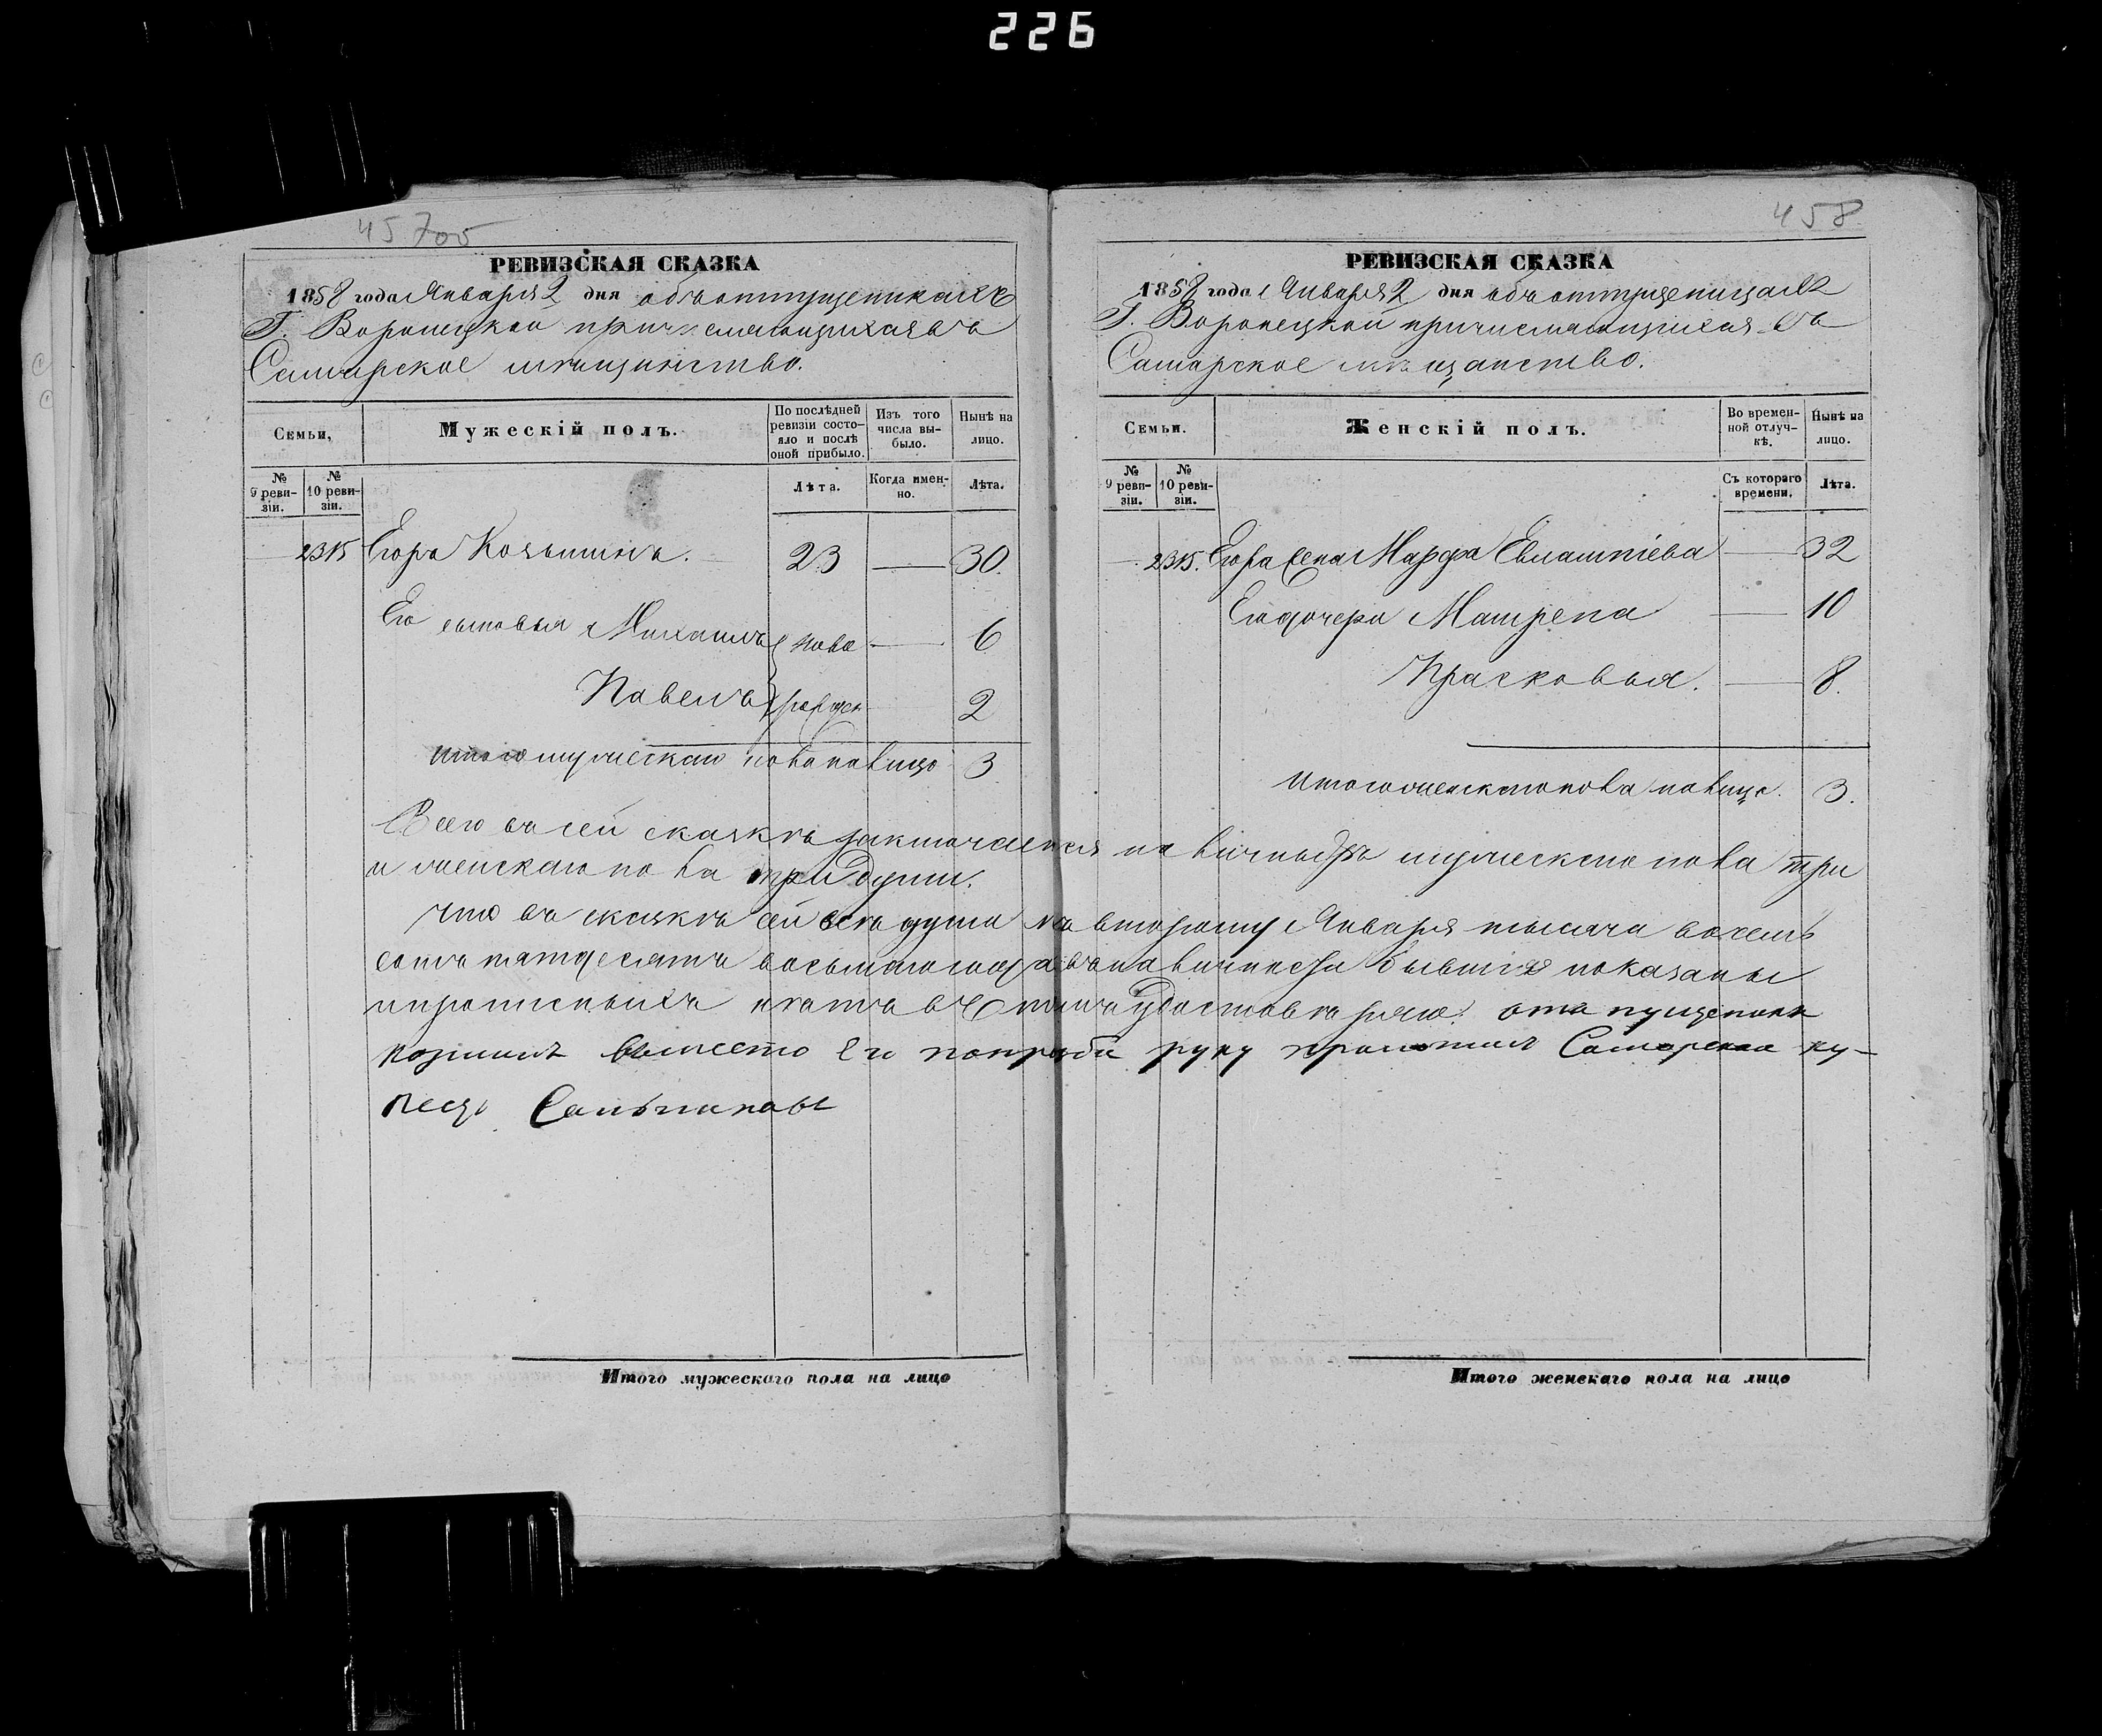 226
457об
РЕВИЗСКАЯ СКАЗКА
1858 года Января 2 дня объ отпущеникахъ
Г. Воронецкой причисляющихся въ
Самарское мѣщанство.
Семьи,
Мужескій полъ.
По послѣдней ревизіи состояло и послѣ оной прибыло.
Изъ того числа выбыло.
Нынѣ на лицо.
№ 9 ревизіи.
№ 10 ревизіи.
Лѣта.
Когда именно.
Лѣта.
2315 Егоръ Козьминъ. 23 — 30.
Его сыновья Михаилъ ново — 6
Павелъ рожден 2
Итого мужескаго пола на лицо 3
458
РЕВИЗСКАЯ СКАЗКА
1858 года Января 2 дня объ отпущеницахъ
Г. Воронецкой причисляющихся въ
Самарское мѣщанство.
Семьи.
Женскій полъ.
Во временной отлучкѣ.
Нынѣ на лицо.
№ 9 ревизіи.
№ 10 ревизіи.
Съ котораго времени.
Лѣта.
2315. Егора жена Марфа — 32
Его дочери Матрена — 10
Прасковья. — 8.
Итого женскаго пола на лицо. 3.
Всего въ сей сказкѣ заключается на личныхъ мужескаго пола три
и женскаго пола три души.
Что въ сказкѣ сей всѣ души ко второму Января тысяча восемь
сотъ пятдесятъ восьмаго года на личнести бывшія показаны
и прописныхъ нѣтъ въ томъ удостовѣряю. отпущеникъ
Козминъ вместо его по прозбѣ руку приложилъ Самарской ку-
пецъ
Итого мужескаго пола на лицо
Итого женскаго пола на лицо